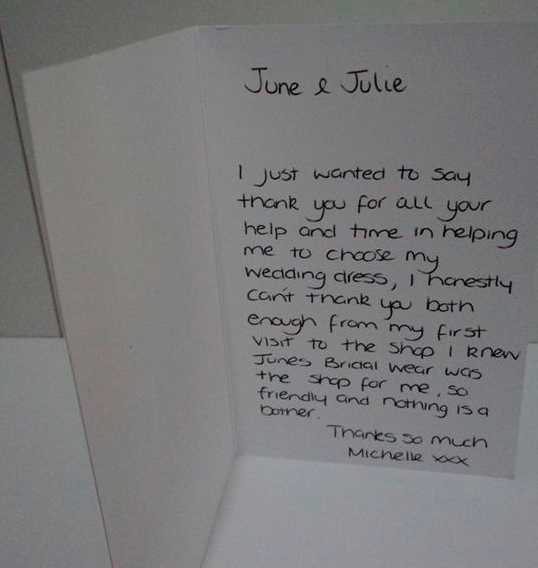 June & Julie
I just wanted to say
thank you for all your
help and time in helping
me to choose my
wedding dress, I honestly
can't thank you both
enough from my first
visit to the shop I knew
Junes Bridal wear was
the shop for me, so
friendly and nothing is a
bother.
Thanks so much
Michelle xxx